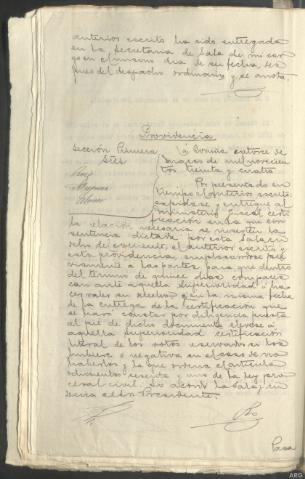 anterior escrito ha sido entregado
en la Secretaría de Sala de mi car
go en el mismo dia de su fecha, des
pues del despacho ordinario y se anota.
Providencia
Sección Primera
Stes
La Coruña catorce de
de mil novecien
tos treinta y cuatro
Por presentado en
tiempo el anterior escrito
expidase y entregue al
Ministerio Fiscal certi
ficación en la que con
la relación necesaria se inserten la
sentencia dictada por esta Sala en
el anterior escrito y
esta providencia, emplazandose pre
viamente a las partes para que dentro
del termino de quince dias comparez
can ante aquella Superioridad a ha
cer valer su derecho y en la misma fecha
de la entrega de la certificación que
se hará constar por diligencia puesta
al pié de dicho documento elevese a
aquella Superioridad certificación
literal de los votos reservados si los
hubiere o negativa en el caso de no
haberlos y lo que ordena el artículo
mil setecientos sesenta y uno de la ley pro
cesal civil. Lo acordó la Sala y fir
ma el Sr. Presidente.
ARG